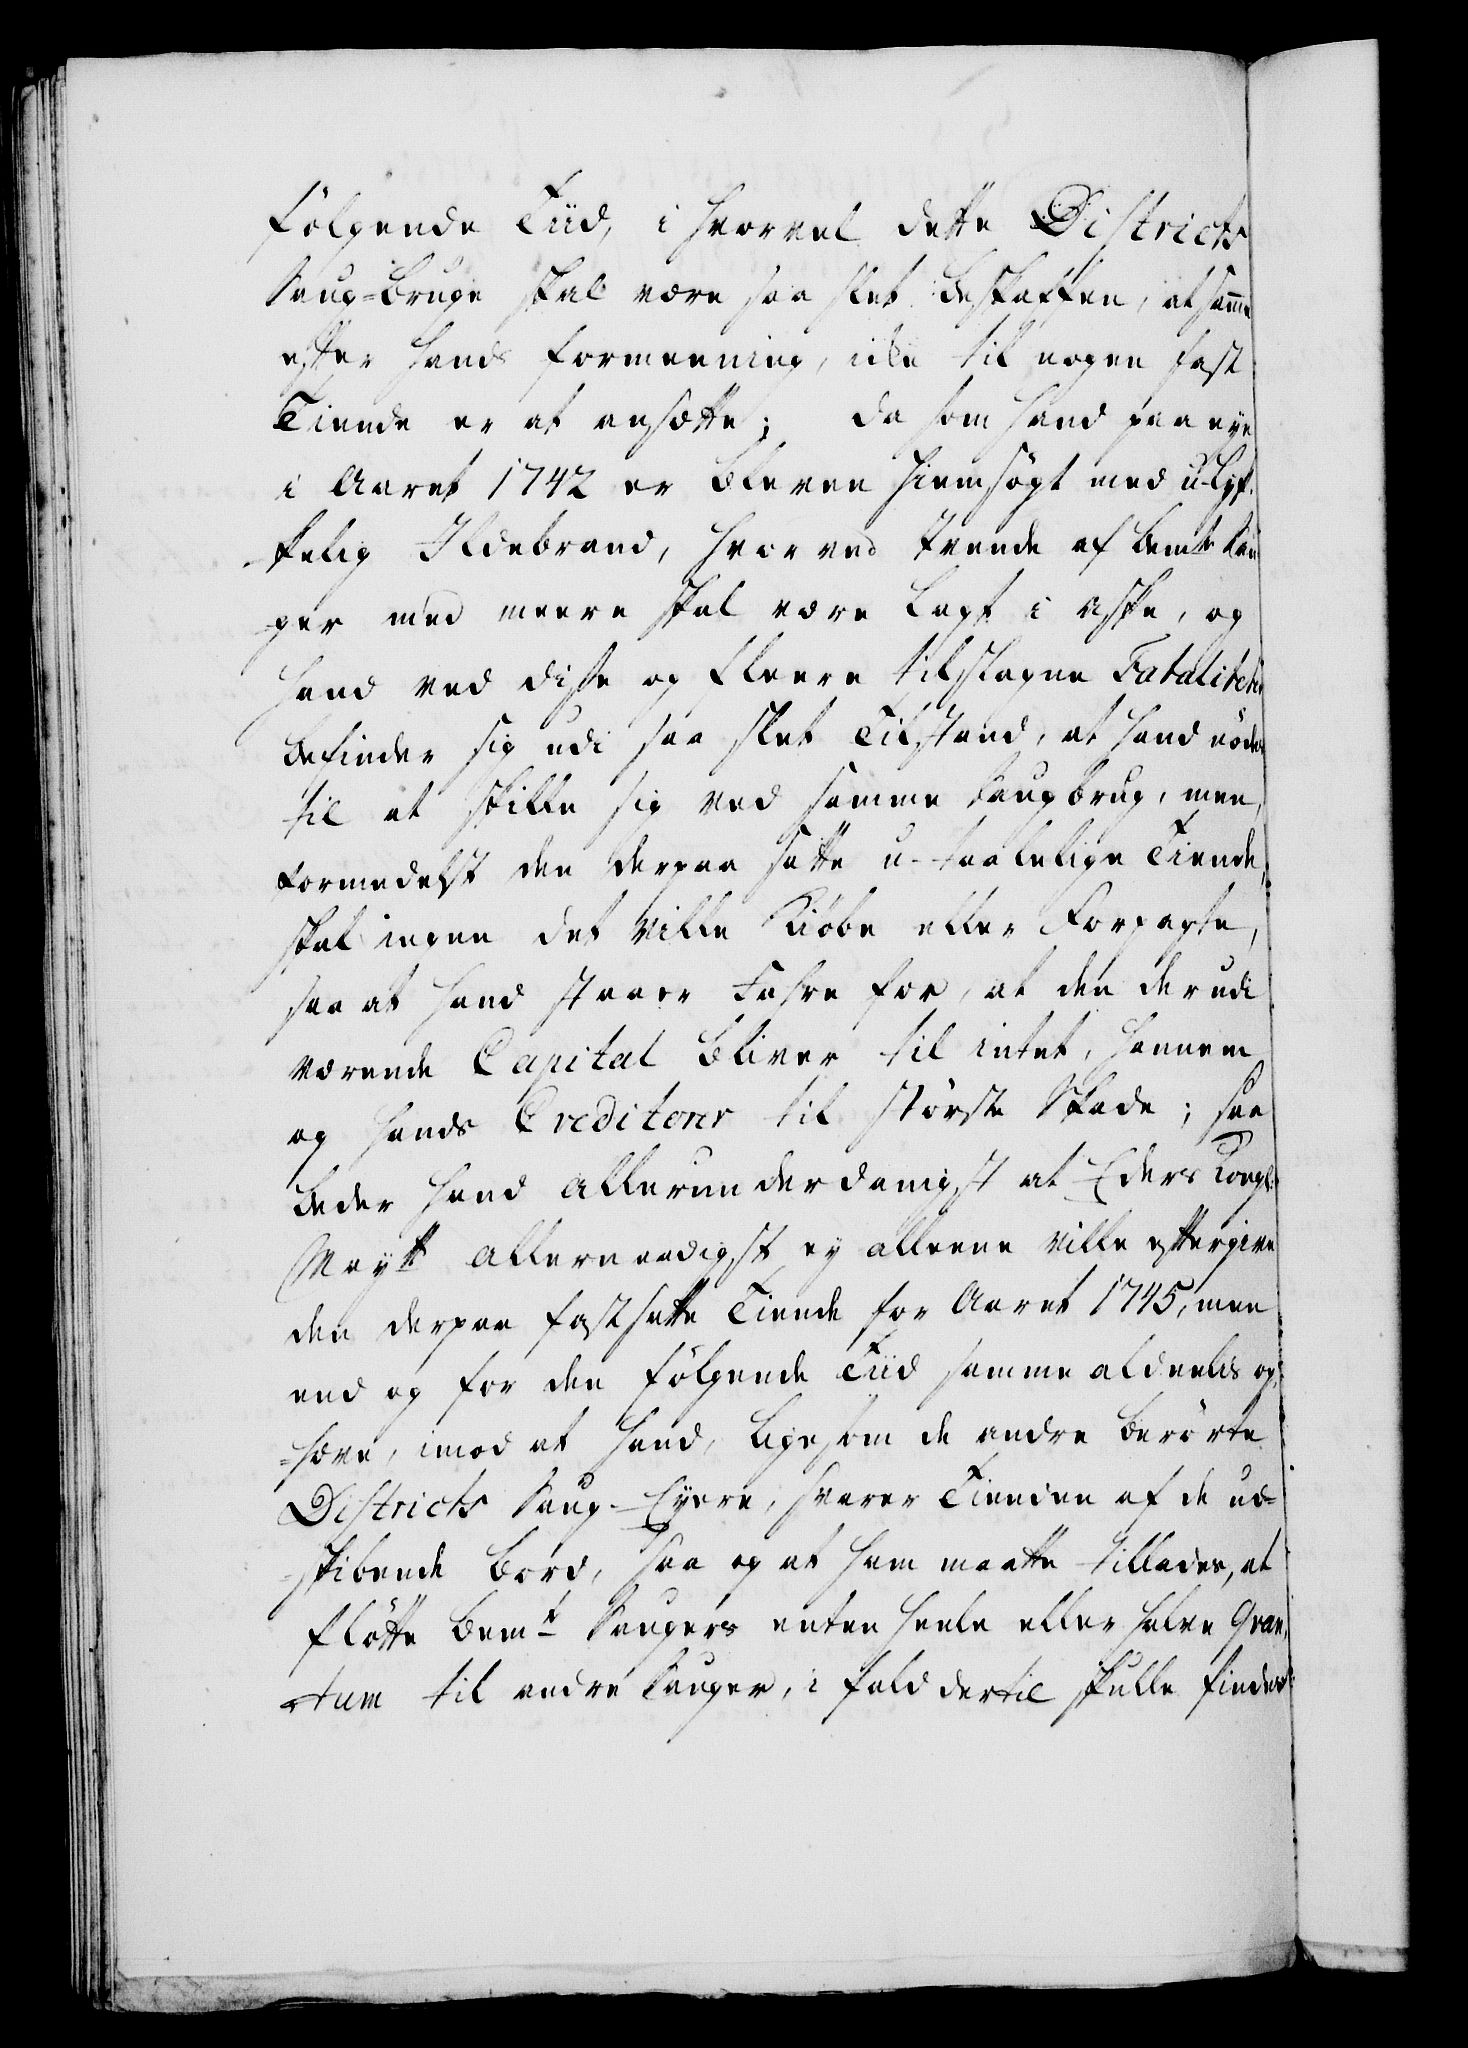 følgende Tiid, i hvorvel dette Districts
Saug-Bruge skal være saa slet beskaffen, at samme
efter hands formeening, icke til nogen fast
Tiende er at ansætte; da som hand paa nye
i Aaret 1742 er bleven hiemsøgt med u-lyk-
kelig Ildebrand, hvorved trende af bemte Sau-
ger med meere skal være lagt i Aske, og
hand ved disse og fleere tilslagne Fataliteter
befinder sig udi saa slet Tilstand, at hand nødes
til at skille sig ved samme Saugbrug, men,
formedelst den derpaa satte u-taalelige Tiende,
skal ingen det ville Kiøbe eller Forpagte,
saa at hand staaer Fahre for, at den derudi
værende Capital bliver til intet, hannem
og hands Creditorer til største Skade; saa
beder hand allerunderdanigst at Eders Kongl:
Maytt allernaadigst ey alleene ville eftergive
den derpaa fastsatte Tiende for Aaret 1745, men
end og for den følgende Tiid samme aldeeles op-
hæve, imod at hand, ligesom de andre berørte
Districts Saug-Eyere, svarer Tienden af de ud-
skibende Bord, saa og at ham maatte tillades, at
fløtte bemte Saugers enten heele eller halve Qvan-
tum til andre Sauger, i fald dertil skulle findes